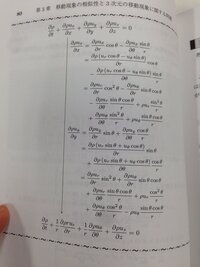 第3章 移動現象の相似性と3次元の移動現象に関する
∂ρ/∂t + ∂ρu_x/∂x + ∂ρu_y/∂y + ∂ρu_z/∂z = 0
∂ρu_x/∂x = ∂ρu_x/∂r cos θ − ∂ρu_x/∂θ sin θ/r
= ∂ρ(u_r cos θ − u_θ sin θ)/∂r cos θ
− ∂ρ(u_r cos θ − u_θ sin θ)/∂θ sin θ/r
= ∂ρu_r/∂r cos² θ − ∂ρu_θ/∂r sin θ cos θ
− ∂ρu_r/∂θ sin θ cos θ/r + ρu_r sin² θ/r
+ ∂ρu_θ/∂θ sin² θ/r + ρu_θ sin θ cos θ/r
∂ρu_y/∂y = ∂ρu_y/∂r sin θ + ∂ρu_y/∂θ cos θ/r
= ∂ρ(u_r sin θ + u_θ cos θ)/∂r sin θ
+ ∂ρ(u_r sin θ + u_θ cos θ)/∂θ cos θ/r
= ∂ρu_r/∂r sin² θ + ∂ρu_θ/∂r sin θ cos θ
+ ∂ρu_r/∂θ sin θ cos θ/r + ρu_r cos² θ/r
+ ∂ρu_θ/∂θ cos² θ/r − ρu_θ sin θ cos θ/r
∂ρ/∂t + 1/r ∂ρru_r/∂r + 1/r ∂ρu_θ/∂θ + ∂ρu_z/∂z = 0